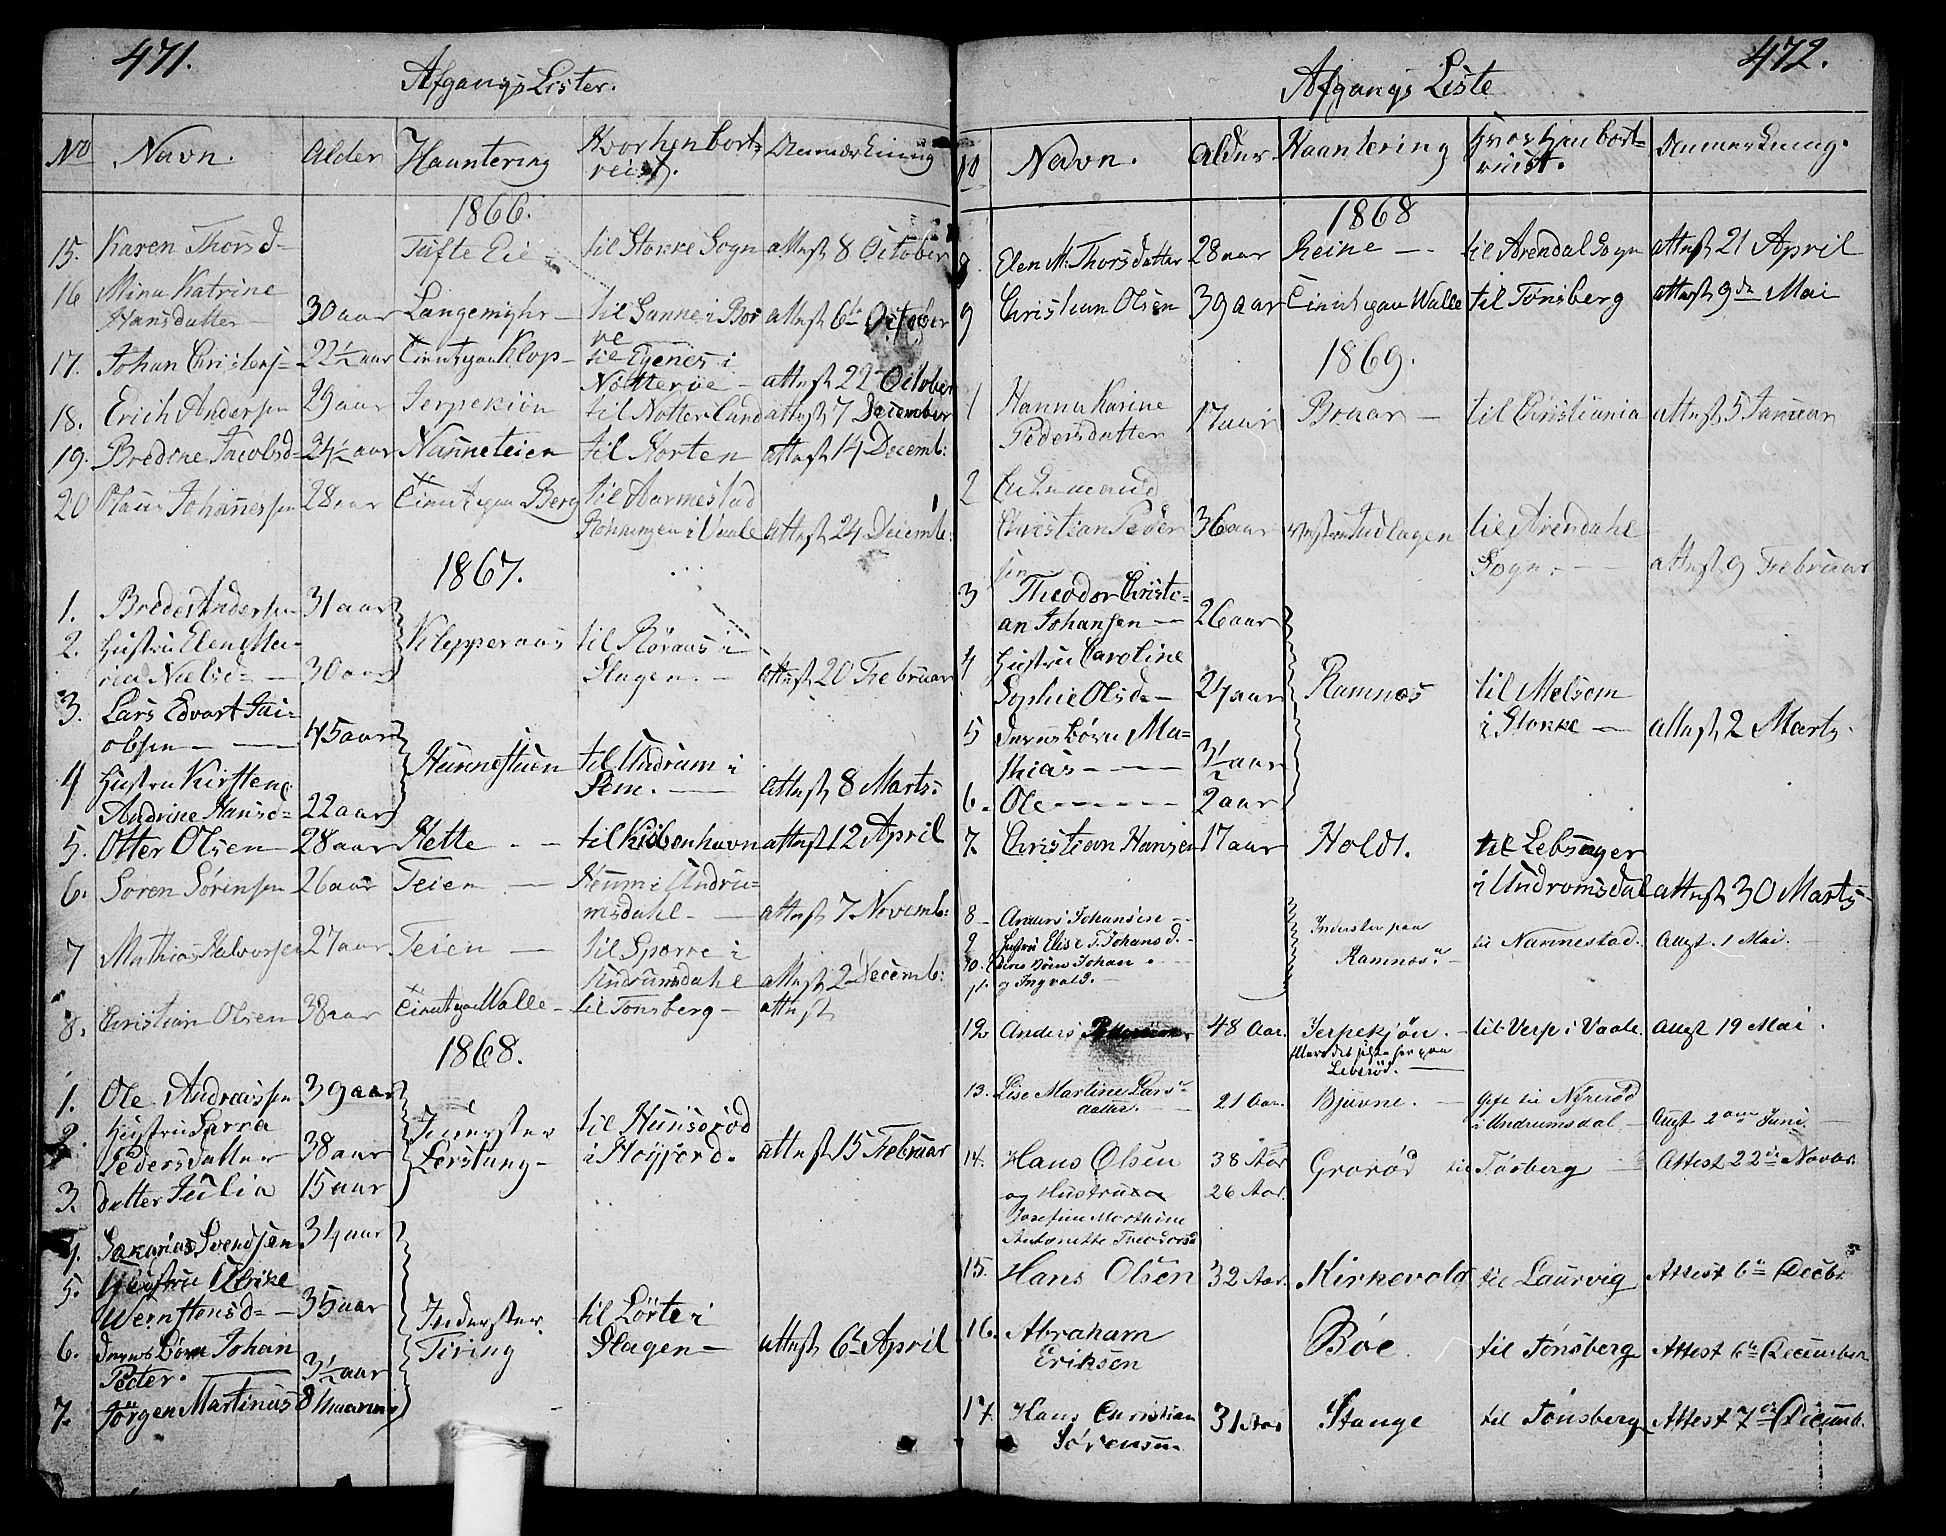 471.
Afgangs Lister.
No Navn. Alder Haantering Hvorhen bort- Anmærkning
reist.
1866.
15. Karen Thorsd- Tufte Eie - til Stokke Sogn attest 8 October
16 Mina Katrine
Hansdatter 30 aar Langemyhr - til Sanne i Bor attest 6te October
re
17. Johan Christens- 22½ aar Klop- til Egenes i
Nötteröe - attest 22 October
18. Erich Andersen 29 aar Jerpekiön til Nötterland attest 7 December
19. Bredine Jacobsd- 24½ aar Nanneteien til Horten attest 14 Decemb:
20 Olaus Johannessen 28 aar Berg til Aarmestad
i Vaale attest 24 Decemb:
1867.
1. Brede Andersen 31 aar
2. Hustru Elen Ma- Klepperaas til Röraas i
ria Nielsd- 30 aar Slagen. - attest 20 Februar
3. Lars Edvart Jai-
obsen - 45 aar
Hunnestuen til Undrum i
4 Hustru Kirstene Sem. - attest 8 Marts:
Andrine Hansd- 22 aar
5. Otter Olsen 28 aar Hette - til Kiöbenhavn attest 12 April
6. Soren Sörensen 26 aar Teien - Heum i Undru-
msdahl - attest 7 Novemb:
7 Mathias Halvorsen 27 aar Teien - til Sporre i
Undrumsdahl attest 2 Decemb:
8. Christian Olsen 38 aar Walle - til Tonsberg - attest
1868.
1. Ole Andraissen 39 aar
2. Hustru Sarra Inderster til Hunseröd
Pedersdatter 38 aar Lerstang - i Höyjord. attest 15 Februar
3. datter Julia 15 aar
4. Sakarias Svendsen 34 aar
5. Hustru Ulrike
Wernstensd- 35 aar Inderster til Lörte i
6. deres Börn Johan Tiring Slagen - attest 6te April
Peder. 3½ aar
7. Jörgen Martinus 8
472.
Afgangs Liste
No Navn. Alder Haantering Hvorhen bort-
reist. Anmærkning.
1868
8. Elen M. Thorsdatter 28 aar Reine - til Arendal Sogn attest 21 April
9 Christian Olsen 39 aar Walle til Tönsberg attest 9de Mai
1869.
1 Hanna Karine
Pedersdatter 17 aar Braar - til Christiania attest 5 Januar
2
Christian Peder 36 aar til Arendahl
sen Sogn. - attest 9 Februar
3 Theodor Christi-
an Johansen - 26 aar
4 Hustru Caroline
Sophie Olsd - 24 aar Ramnæs til Melsom
5 deres börn Ma- i Stokke - attest 2 Marts
thias - 3½ aar
6. Ole - 2 aar
7. Christian Hansen 17 aar Holdt. til Lebsager
i Undromsdal attest 30 Marts
8 - Anders Johansen -
9 Hustru Elise T. Johansd. - Inderster paa til Nannestad. Attest. 1 Mai.
10. deres Börn Johan Ramnæs. -
11. og Ingvald. -
12 Anders 48 Aar. Jerpekjön. - til Verp i Vaale. Attest 19 Mai.
Leberöd.
13. Lise Martine Lars-
datter. 21 Aar. Bjuvne. - gift til
i Undrumsdal - Attest 2den Juni
14. Hans Olsen 38 Aar Grorød til Tösberg Attest 22de Novbr.
og Hustru 26 Aar.
Josefine Marthine
Antonette Theodorsd
15. Hans Olsen 32 Aar Kirkevold til Laurvig Attest 6te Decbr.
16. Abraham Böe til Tønsberg Attest 6te December
Eriksen
17. Hans Christian 31 Aar Stange til Tønsberg Attest 7de Decemb.
Sørensen